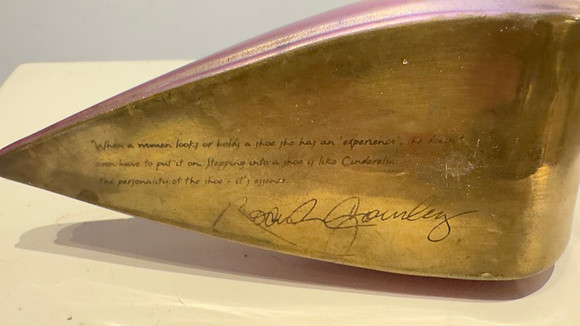 "When a women looks or holds a shoe she has an 'experience', she doesn't
even have to put it on. Stepping into a shoe is like Cinderella
the personality of the shoe - it's essence.